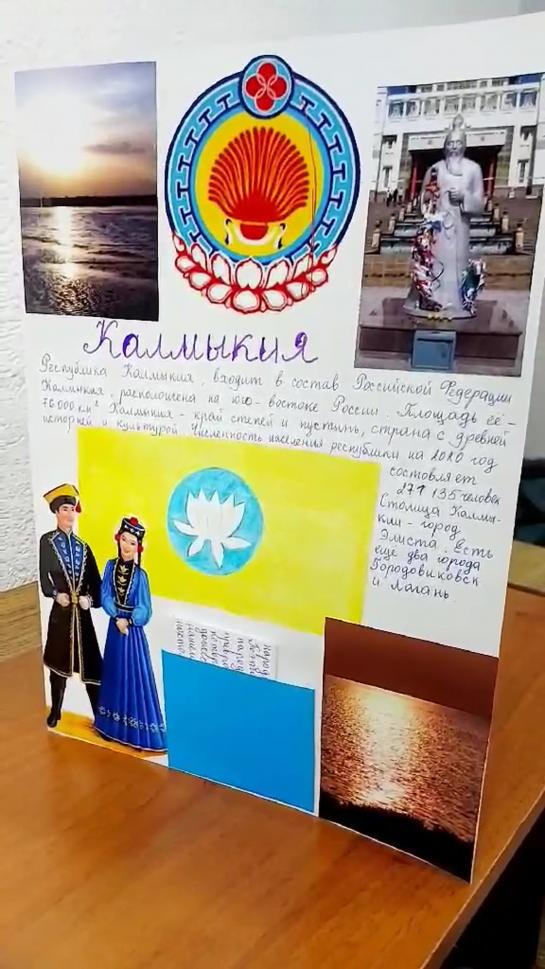 Калмыкия
Республика Калмыкия, входит в состав Российской Федерации
Калмыкия, расположена на юго-востоке России. Площадь её -
76 000 км² Калмыкия - край степей и пустынь, страна с древней
историей и культурой. Численность населения республики на 2020 год
состовляет
271 135 человек
Столица Калмы-
кии - город
Элиста. Есть
еще два города
Городовиковск
и Лагань.